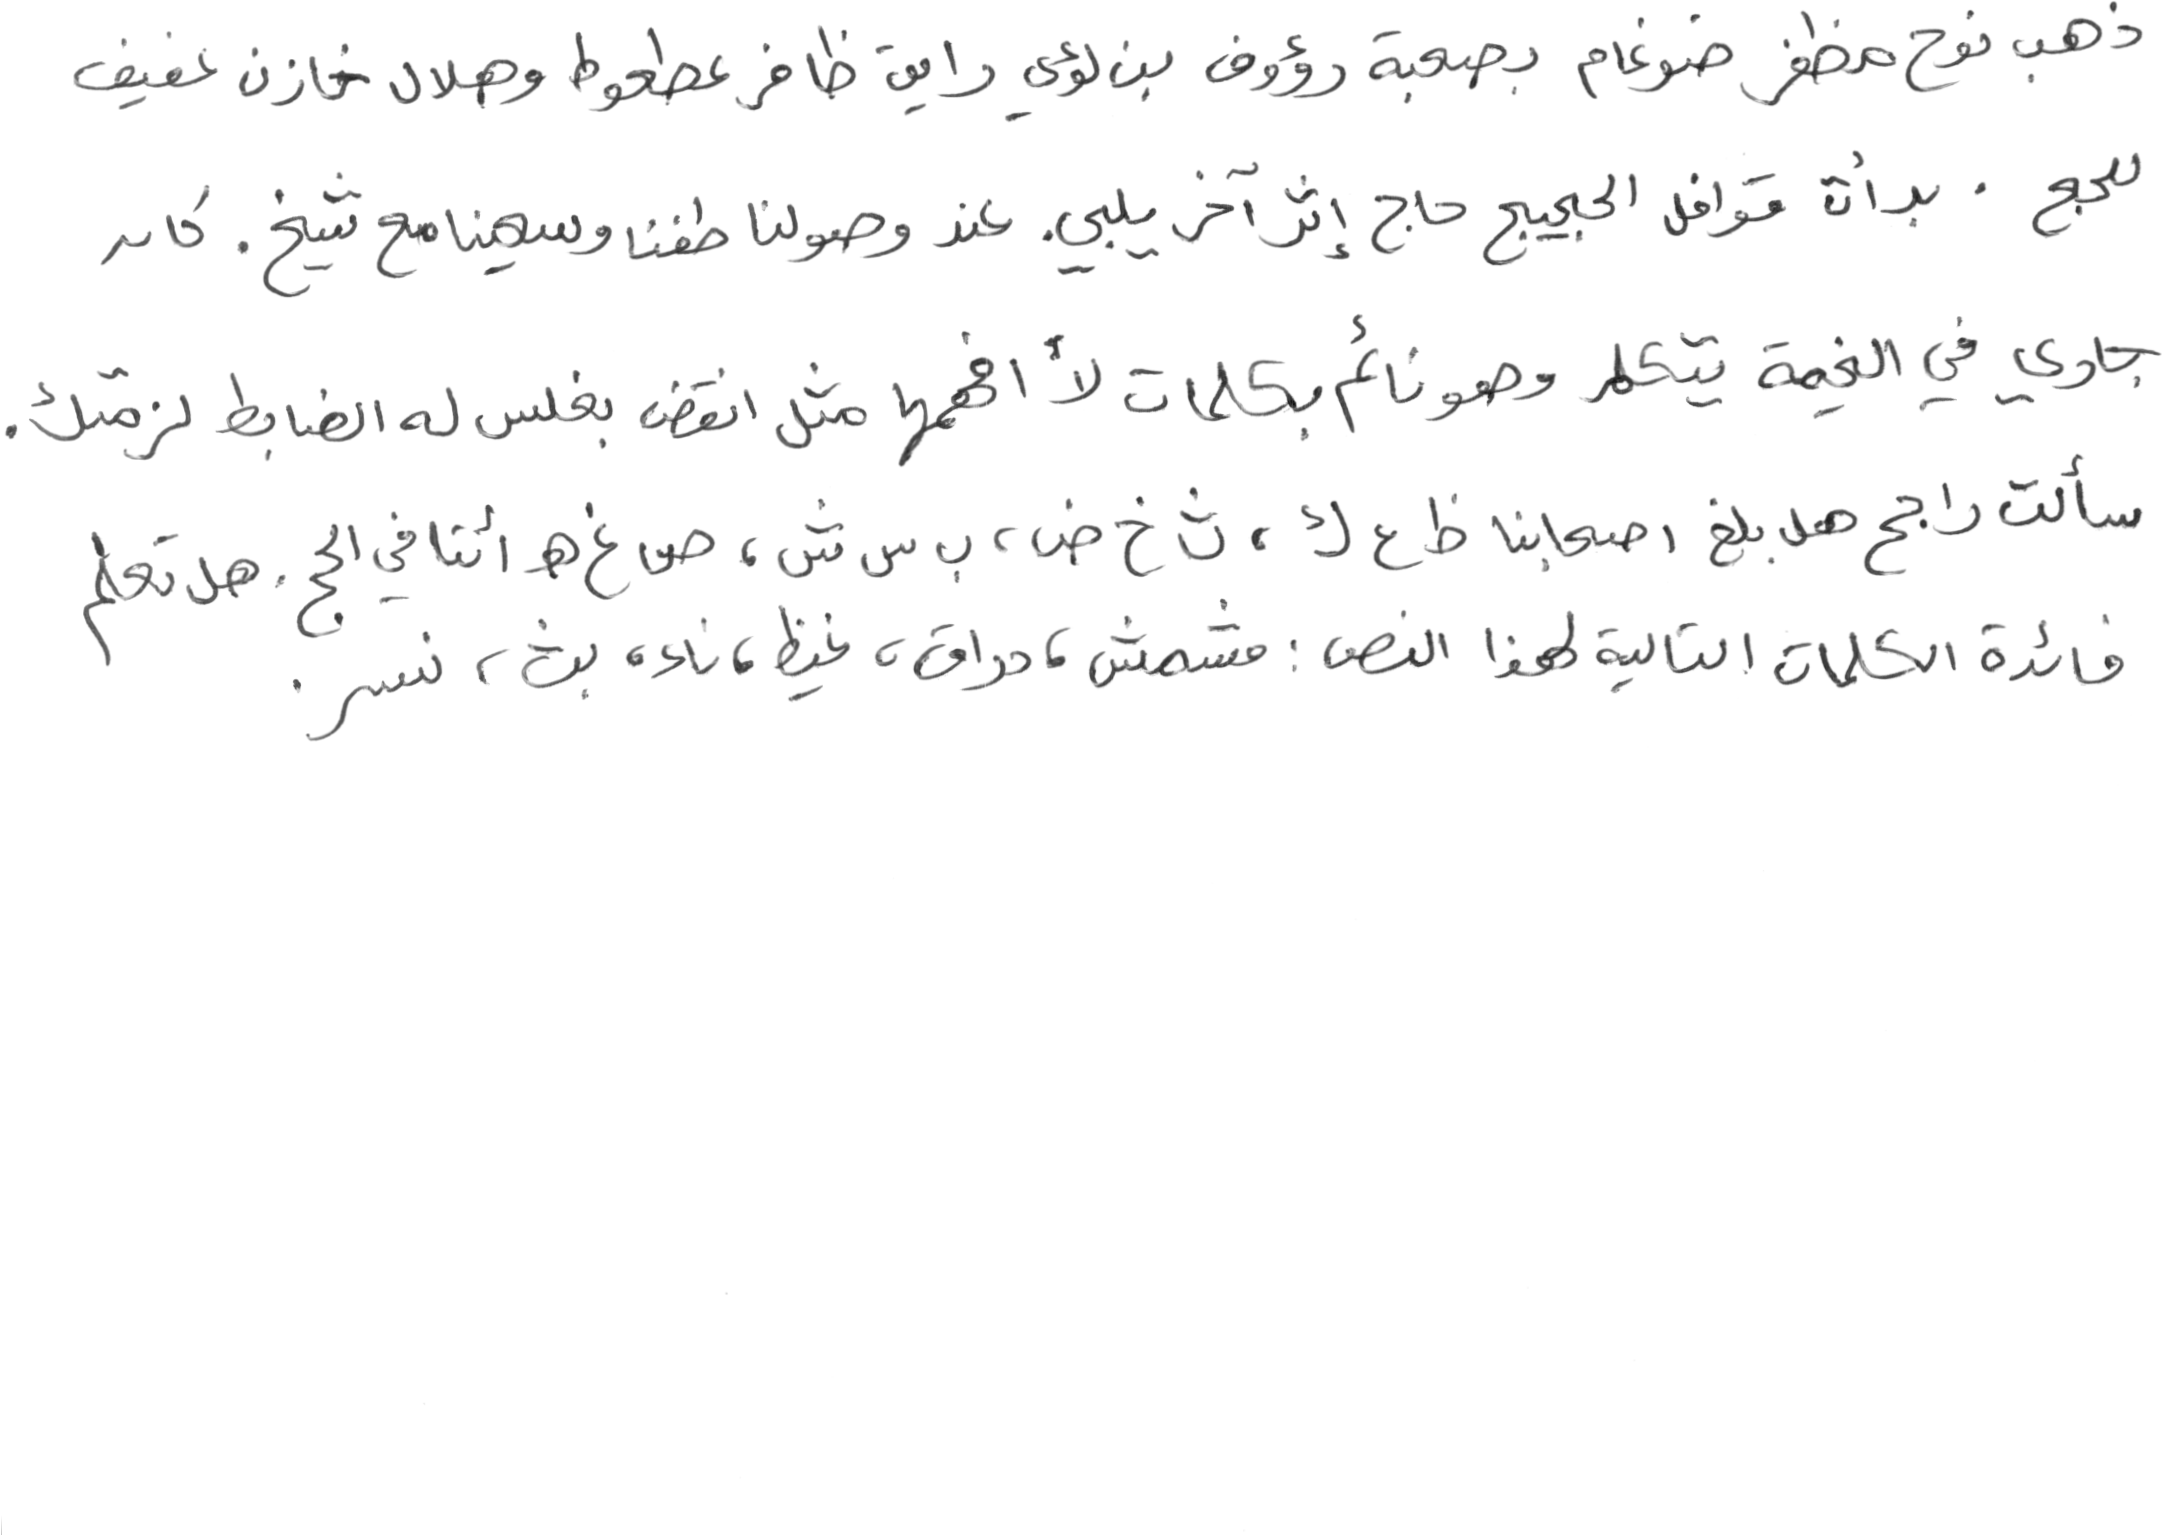 ذهب نوح مظفر ضرغام بصحبة رؤوف بن لؤي رايق ظافر عطعوط وهلال خازن عفيف
للحج . بدأت قوافل الحجيج حاج إثر آخر يلبي. عند وصولنا طفنا وسعينا مع شيخ. كان
جاري في الخيمة يتكلم وهو نائم بكلمات لا أفهمها مثل انقض بغلس له الضابط لزمتك.
سألت راجح هل بلغ اصحابنا ظ ع ك، ث خ ض، ب س ش، ص غ ه أننا في الحج. هل تعلم
فائدة الكلمات التالية لهذا النص: مشمش، دراق، غيظ، ناء، بث، نسر.